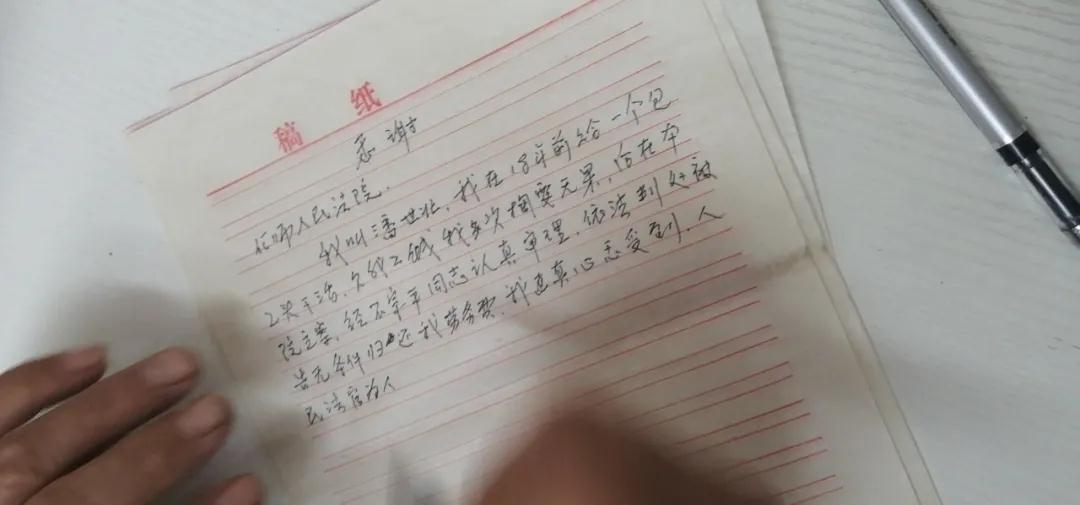 稿 纸
感谢
偃师人民法院.
我叫潘世壮,我在18年前给一个包
工头干活,欠我工钱我多次相要无果,后在本
院立案,经 宗平同志认真审理,依法判处被
告无条件归还我劳务费,我这真心感受到,人
民法官为人